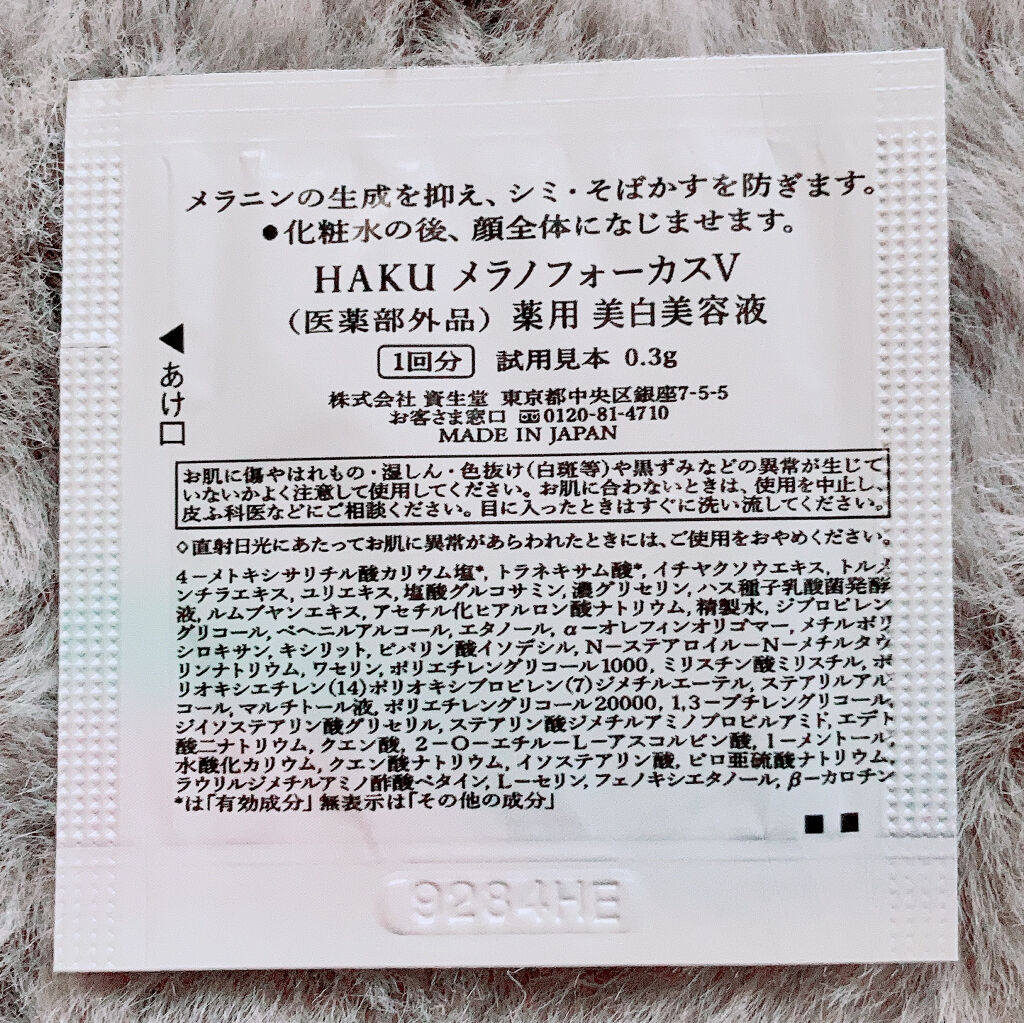 メラニンの生成を抑え、シミ・そばかすを防ぎます。
●化粧水の後、顔全体になじませます。
HAKU メラノフォーカスV
（医薬部外品）薬用 美白美容液
1回分 試用見本 0.3g
株式会社 資生堂 東京都中央区銀座7-5-5
お客さま窓口 0120-81-4710
MADE IN JAPAN
◀あけ口
お肌に傷やはれもの・湿しん・色抜け(白斑等)や黒ずみなどの異常が生じて
いないかよく注意して使用してください。お肌に合わないときは、使用を中止し、
皮ふ科医などにご相談ください。目に入ったときはすぐに洗い流してください。
◇直射日光にあたってお肌に異常があらわれたときには、ご使用をおやめください。
4−メトキシサリチル酸カリウム塩*, トラネキサム酸*, イチヤクソウエキス, トルメ
ンチラエキス, ユリエキス, 塩酸グルコサミン, 濃グリセリン, ハス種子乳酸菌発酵
液, ルムプヤンエキス, アセチル化ヒアルロン酸ナトリウム, 精製水, ジプロピレン
グリコール, ベヘニルアルコール, エタノール, α−オレフィンオリゴマー, メチルポリ
シロキサン, キシリット, ピバリン酸イソデシル, N−ステアロイル−N−メチルタウ
リンナトリウム, ワセリン, ポリエチレングリコール1000, ミリスチン酸ミリスチル, ポ
リオキシエチレン(14)ポリオキシプロピレン(7)ジメチルエーテル, ステアリルアル
コール, マルチトール液, ポリエチレングリコール20000, 1,3−ブチレングリコール,
ジイソステアリン酸グリセリル, ステアリン酸ジメチルアミノプロピルアミド, エデト
酸二ナトリウム, クエン酸, 2−O−エチル−L−アスコルビン酸, l−メントール,
水酸化カリウム, クエン酸ナトリウム, イソステアリン酸, ピロ亜硫酸ナトリウム,
ラウリルジメチルアミノ酢酸ベタイン, L−セリン, フェノキシエタノール, β−カロチン
*は「有効成分」無表示は「その他の成分」
9284HE